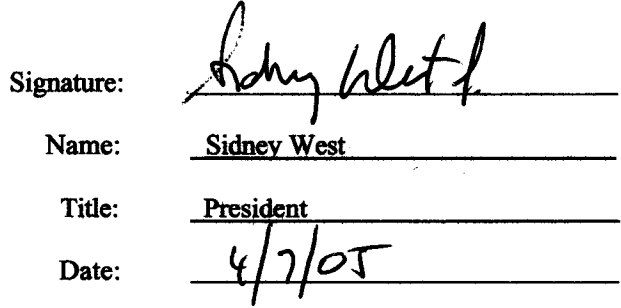 Signature: Sidney West
Name: Sidney West
Title: President
Date: 4/7/05